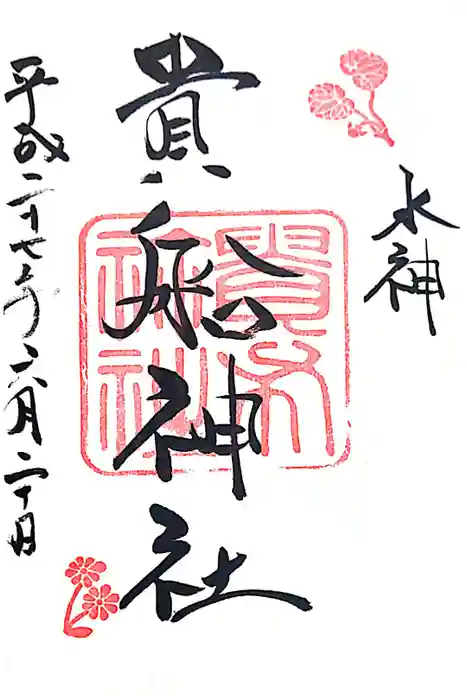 水神
貴船神社
平成二十七年六月二十日